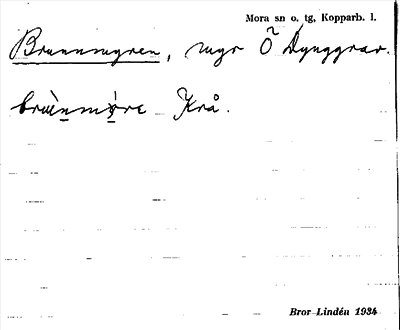 Mora sn o. tg, Kopparb. l.
Brunnmyren, myr Ö Dynggrav.
Krå.
Bror Lindén 1934